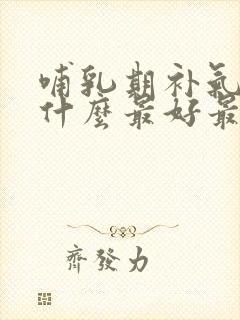 哺乳期补氣
什麼最好最
齊發力